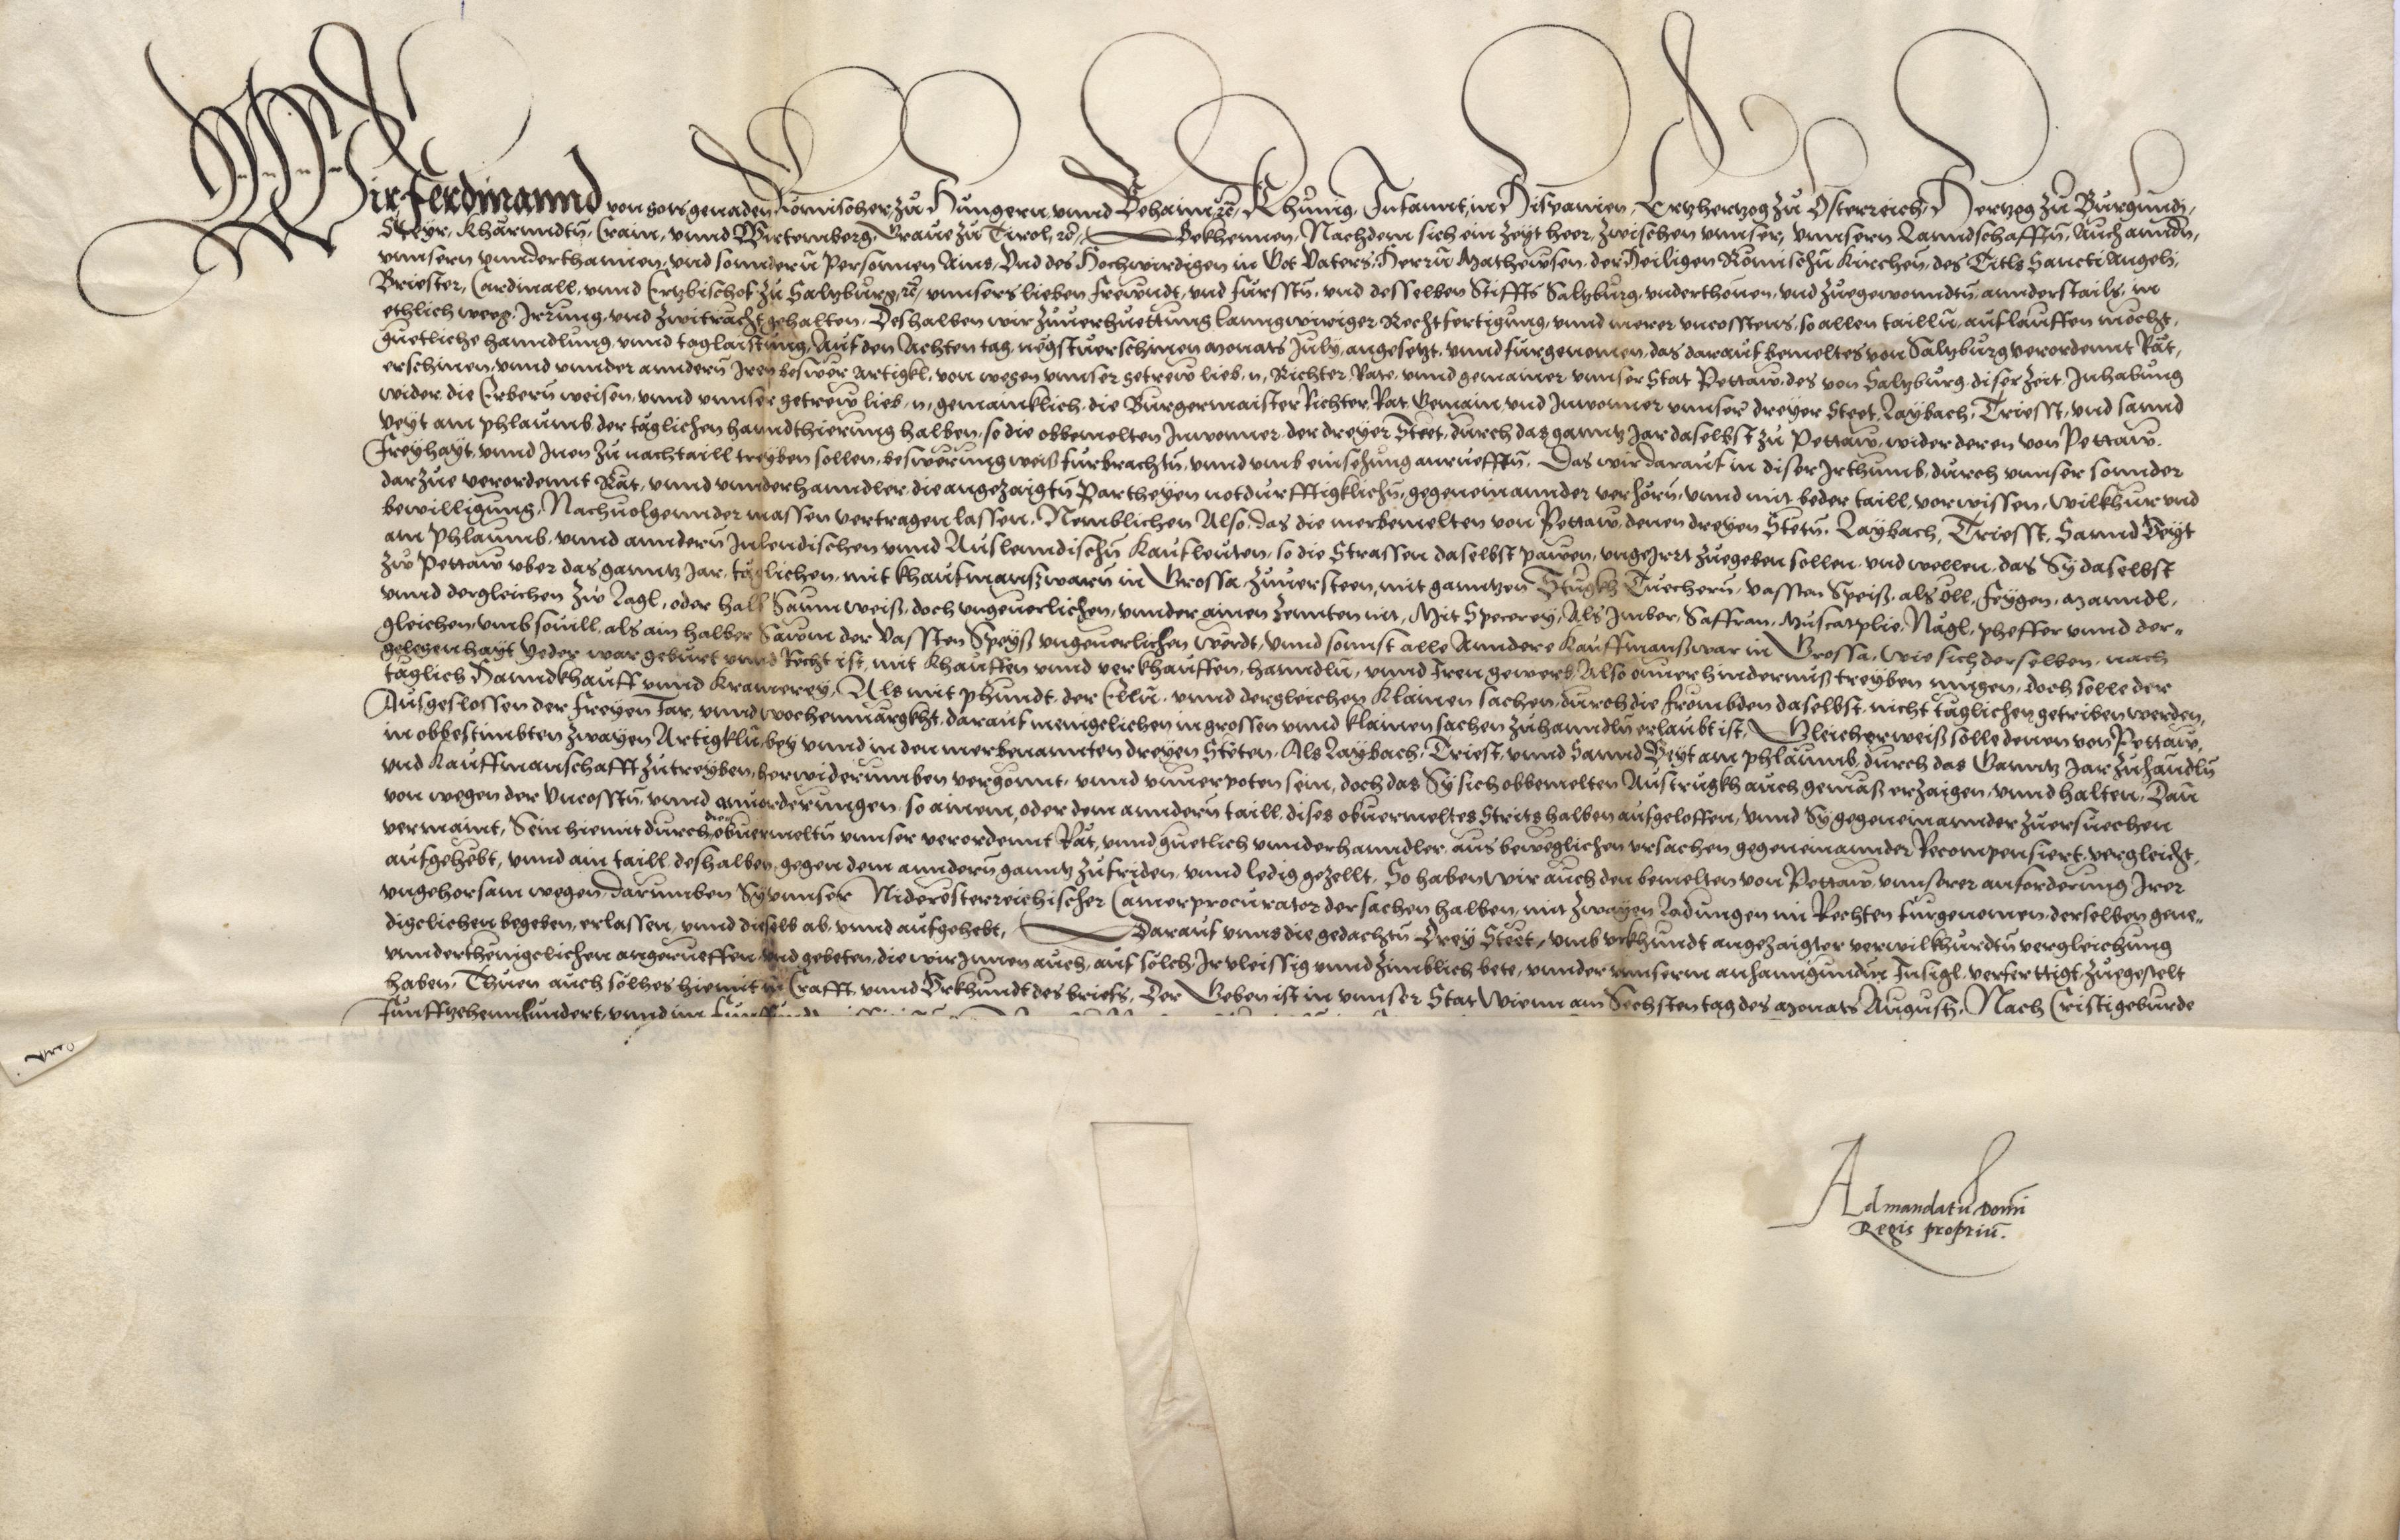 Wir Ferdinannd von gots genaden Romischer, zu Hungern, unnd Behaim, rc, Khunig, Infannt, in Hispanien, Ertzhertzog zu Osterreich, Hertzog zu Burgundi,
Steyr, Kharnndtn, Crain, unnd Wirtemberg, Grave zu Tirol, rc, Bekhennen, Nachdem sich ein Zeyt heer, zwischen unnser, unnsern Lanndschafftn, Auch anndn,
unnsern unnderthannen, und sonndern Personnen Ains, Und des Hochwirdigen in Got Vaters, Herrn Matheusen, der Heiligen Römischn Kirchen, des Titls Sancti Angeli,
Briester, Cardinall, unnd Ertzbischof zu Saltzburg, rc, unnsers lieben freundt, und fursstn, und desselben Stiffts Saltzburg, underthonen, und zuegewonndtn, annderstails, in
ethlich weeg, Irrung, und Zwitracht gehalten, Deshalben wir zuverhuettung lanngwiriger Rechtfertigung, unnd merer uncosstens, so allen tailln, auflauffen mocht,
guetliche hanndlung unnd taglaistung, Auf den Achten tag, negstverschinen monats July, angesetzt, unnd furgenomen, das darauf bemeltes von Saltzburg verordennt Rät,
erschinen, unnd unnder anndern Iren beswer Artigkl, von wegen unnser getrew lieb, n, Richter, Rate, unnd gemainer unnser Stat Pettaw, des von Saltzburg, diser zeit, Inhabung
wider, die Erbern weisen, unnd unnser getrew lieb, n, gemainklich, die Burgermaister Richter, Rat, Gemain, und Inwonner unnser dreyer Steet, Laybach, Triesst, und Sannd
Veyt am phlaumb, der täglichen hanndthierung halben, so die obbemelten Inwonner, der dreyer Steet, durch das ganntz Jar daselbst zu Pettaw, wider deren von Pettaw.
Freyhayt, unnd Inen zu nachtaill treyben sollen, beswerung weiß furbrachtn, unnd umb einsehung anruefftn, Das wir darauf in diser Irthumb, durch unnser sonnder
darzue verordennt Rät, unnd unnderhanndler, die angezaigtn Partheyen notdurfftigklichn, gegeneinannder verhörn, unnd mit beder taill, vorwissen, wilkhur und
bewilligung, Nachvolgennder massen vertragen lassen, Nemblichen Also, das die merbemelten von Pettaw, denen dreyen Stetn, Laybach, Triesst, Sannd Veyt
am phlaumb, unnd anndern Inlendischen unnd Auslenndischn Kaufleuten, so die Strassen daselbst pawen, ungeirrt zuegeben sollen, und wellen, das Sy daselbst
zw Pettaw uber das ganntz Jar, täglichen, mit khaufmanßwarn in Grossa, zuversteen, mit ganntzen Stugkh Tuechern, vassten Speiß, als Öll, feygen, Manndl,
unnd dergleichen zw Lagl, oder halb Saum weiß, doch ungeverlichen, unnder ainen Zennten nit, Mit Specerey, Als Imber, Saffran, Muscatplie, Nägl, pheffer unnd der=
gleichen, umb sovill, als ain halber Sawm der Vassten Speyß ungeverlichen werdt, unnd sonnst alle Anndere Kauffmanßwar in Grossa, wie sich derselben, nach
gelegenhayt yeder war geburt unnd Recht ist, mit khauffen unnd verkhauffen, hanndln, unnd Iren gewerb, Also on verhindernuß treyben mugen, doch solle der
täglich Hanndkhauff unnd Kramerey, Als mit phundt, der Elln, unnd dergleichen klainen sachen, durch die frombden daselbst, nicht täglichen getriben werden,
Ausgeslossen der freyen Jar, unnd wochenmärgkht, darauf menigelichen in grossen unnd klainen sachen zuhanndln erlaubt ist, Gleicherweiß solle denen von Pettaw,
in obbestimbten zwayen Artigkln, bey unnd in den merbenannten dreyen Steten, Als Laybach, Triest, unnd Sannd Veyt am phlaumb, durch das Ganntz Jar zuhandln
und Kauffmanschafft zutreyben, herwiderumben vergonnt, unnd unverpoten sein, doch das Sy sich obbemelten Austrugkh auch gemäß erzaigen, unnd halten, Dan
von wegen der Uncosstn, unnd anvorderungen, so ainem, oder dem anndern taill, dises obvermeltes Strits halben aufgeloffen, unnd Sy gegeneinannder zuersuechen
vermaint, Sein hiemit durch die obvermeltn unnser verordennt Rät, unnd guetlich unnderhanndler, aus beweglichen ursachen gegeneinannder Recompensiert, vergleicht,
aufgehebt, unnd ain taill deshalben, gegen dem anndern ganntz zufriden, unnd ledig gezellt, So haben wir auch den bemelten von Pettaw, unnserer anforderung Irer
ungehorsam wegen, darumben Sy unnser Niderösterreichischer Camerprocurator der sachen halben, mit zwayen Ladungen im Rechten furgenomen, derselben gene=
digelichen begeben, erlassen, unnd dieselb ab, unnd aufgehebt, Darauf unns die gedachtn Drey Steet, umb urkhundt angezaigter verwilkhurdtn vergleichung
unnderthenigelichen angerueffen, und gebeten, die wir Innen auch, auf solch Ir vleissig unnd zimblich bete, unnder unnserm anhanngundn Insigl, verferttigt, zuegestelt
haben, Thuen auch solhes hiemit in Crafft, unnd Urkhundt des briefs, Der Geben ist in unnser Stat Wienn am Sechsten tag des monats Augusti, Nach Cristi geburde
Funfftzehennhundert, unnd im
Ad mandatu Domi
Regis propriu.